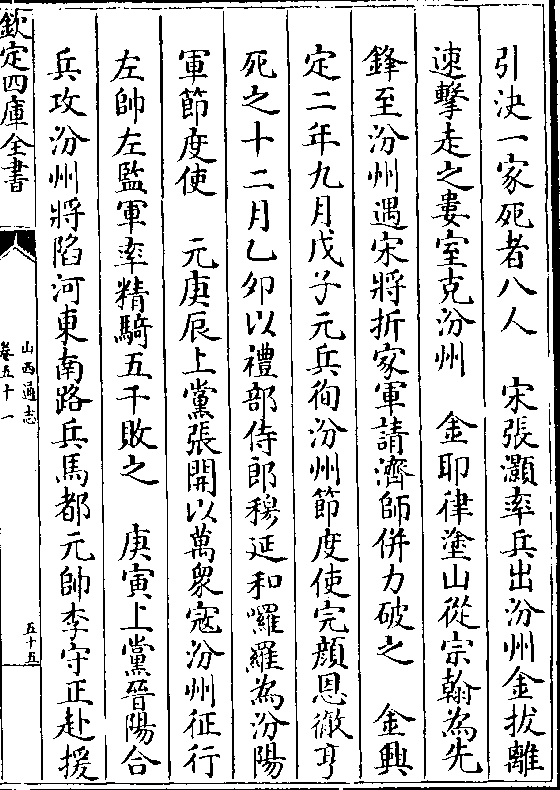 引決一家死者八人　宋張灝率兵出汾州金拔離
速擊走之婁室克汾州　金耶律塗山從宗翰為先
鋒至汾州遇宋將折家軍請濟師併力破之　金興
定二年九月戊子元兵徇汾州節度使完顔恩徹亨
死之十二月乙卯以禮部侍郎穆延和囉羅為汾陽
軍節度使　元庚辰上黨張開以萬衆寇汾州征行
左帥左監軍率精騎五千敗之　庚寅上黨晉陽合
兵攻汾州將陷河東南路兵馬都元帥李守正赴援
欽定四庫全書
山西通志
卷五十一
五十五